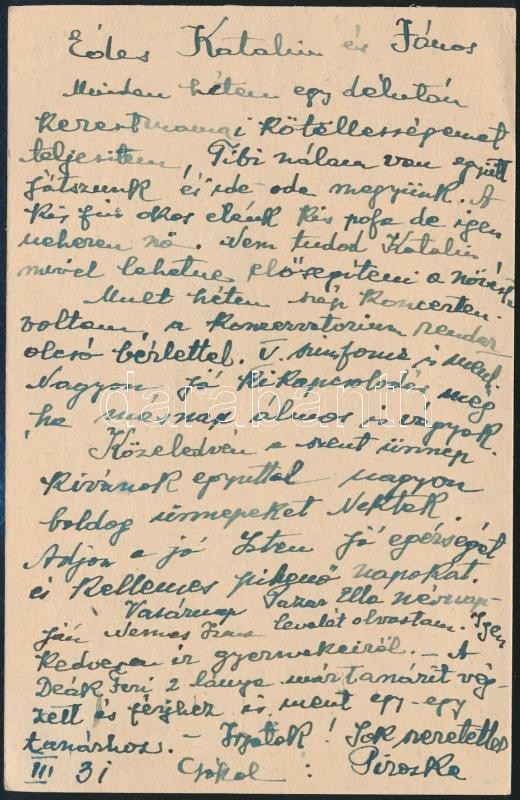 Édes Katalin és János
Minden héten egy délután
keresztmamai kötelességemet
teljesitem, Pibi nálam van együtt
játszunk és ide-oda megyünk. A
kis fiú okos élénk kis pofa de igen
nehezen nő. Nem tudod Katalin
mivel lehetne elősegíteni a növést
Mult héten szép koncerten
voltam, a konzervatorium rendez
olcsó bérlettel. V. szimfonia is
Nagyon jó kikapcsolódás még
ha masnap álmos is vagyok.
Közeledvén a szent ünnep
kivánok egyuttal nagyon
boldog ünnepeket Nektek.
Adjon a jó Isten jó egészséget
és kellemes pihenő napokat.
Vasárnap Pazar Ella névnap-
ján Nemes levelét olvastam. Igen
kedvesen ir gyermekeiről. - A
Deák Feri 2 lánya már tanárit vég-
zett és férjhez is ment egy-egy
tanárhoz. - Irjatok! Sok szeretettel
III 31 Csókol: Piroska
darabanth